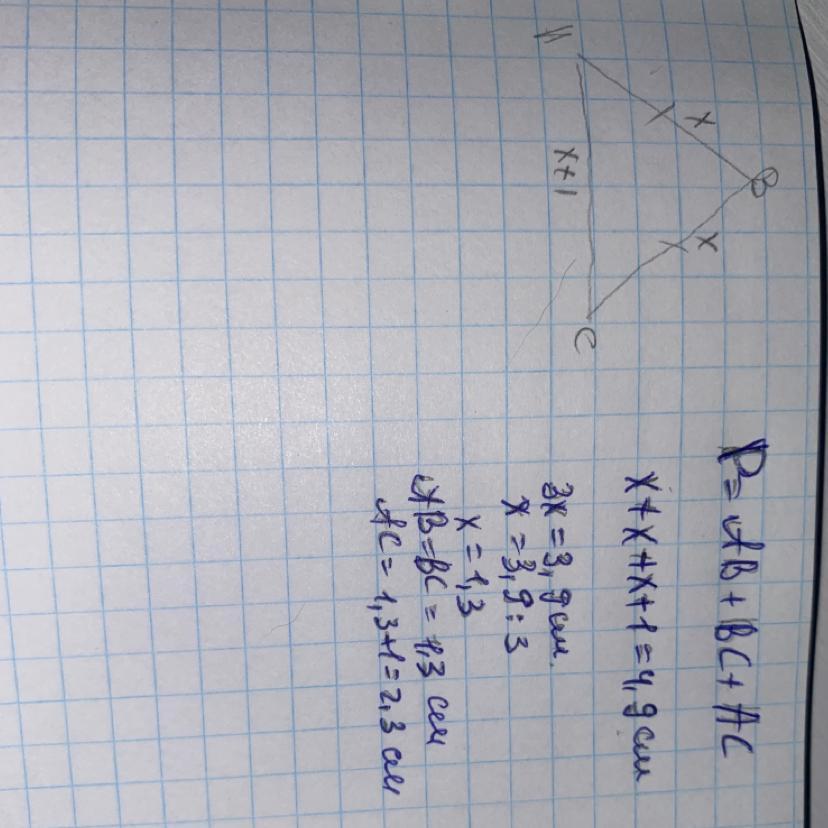 B
x
x
A
x+1
C
P=AB+BC+AC
x+x+x+1=4,9 см
3x=3,9 см.
x=3,9:3
x=1,3
AB=BC=1,3 см
AC=1,3+1=2,3 см